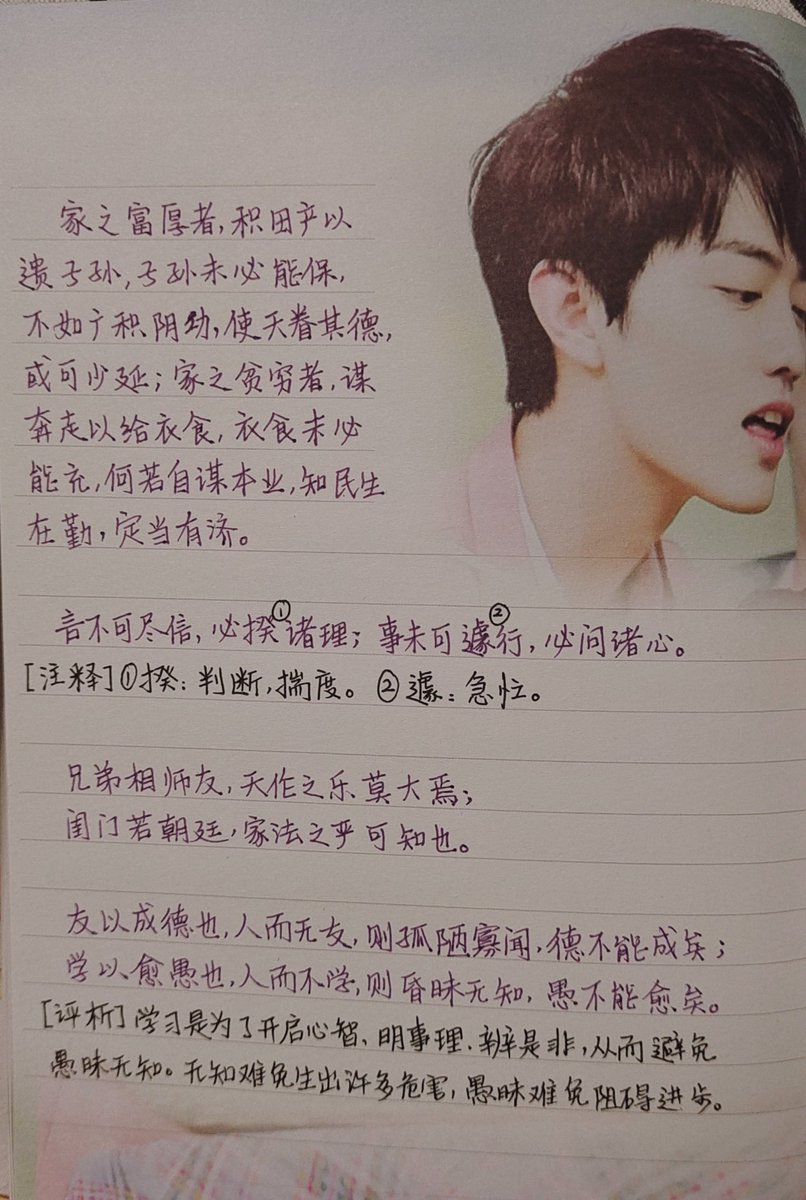 家之富厚者,积田产以
遗子孙,子孙未必能保,
不如广积阴功,使天眷其德,
或可少延;家之贫穷者,谋
奔走以给衣食,衣食未必
能充,何若自谋本业,知民生
在勤,定当有济。
言不可尽信,必揆①诸理;事未可遽②行,必问诸心。
[注释]①揆:判断,揣度。②遽:急忙。
兄弟相师友,天作之乐莫大焉;
闺门若朝廷,家法之严可知也。
友以成德也,人而无友,则孤陋寡闻,德不能成矣;
学以愈愚也,人而不学,则昏昧无知,愚不能愈矣。
[评析]学习是为了开启心智、明事理、辨是非,从而避免
愚昧无知。无知难免生出许多危害,愚昧难免阻碍进步。